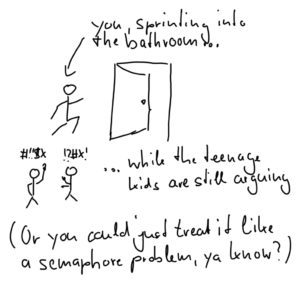 you, sprinting into
the bathroom...
#!'$x !?#x!
... while the teenage
kids are still arguing
(Or you could just treat it like
a semaphore problem, ya know?)